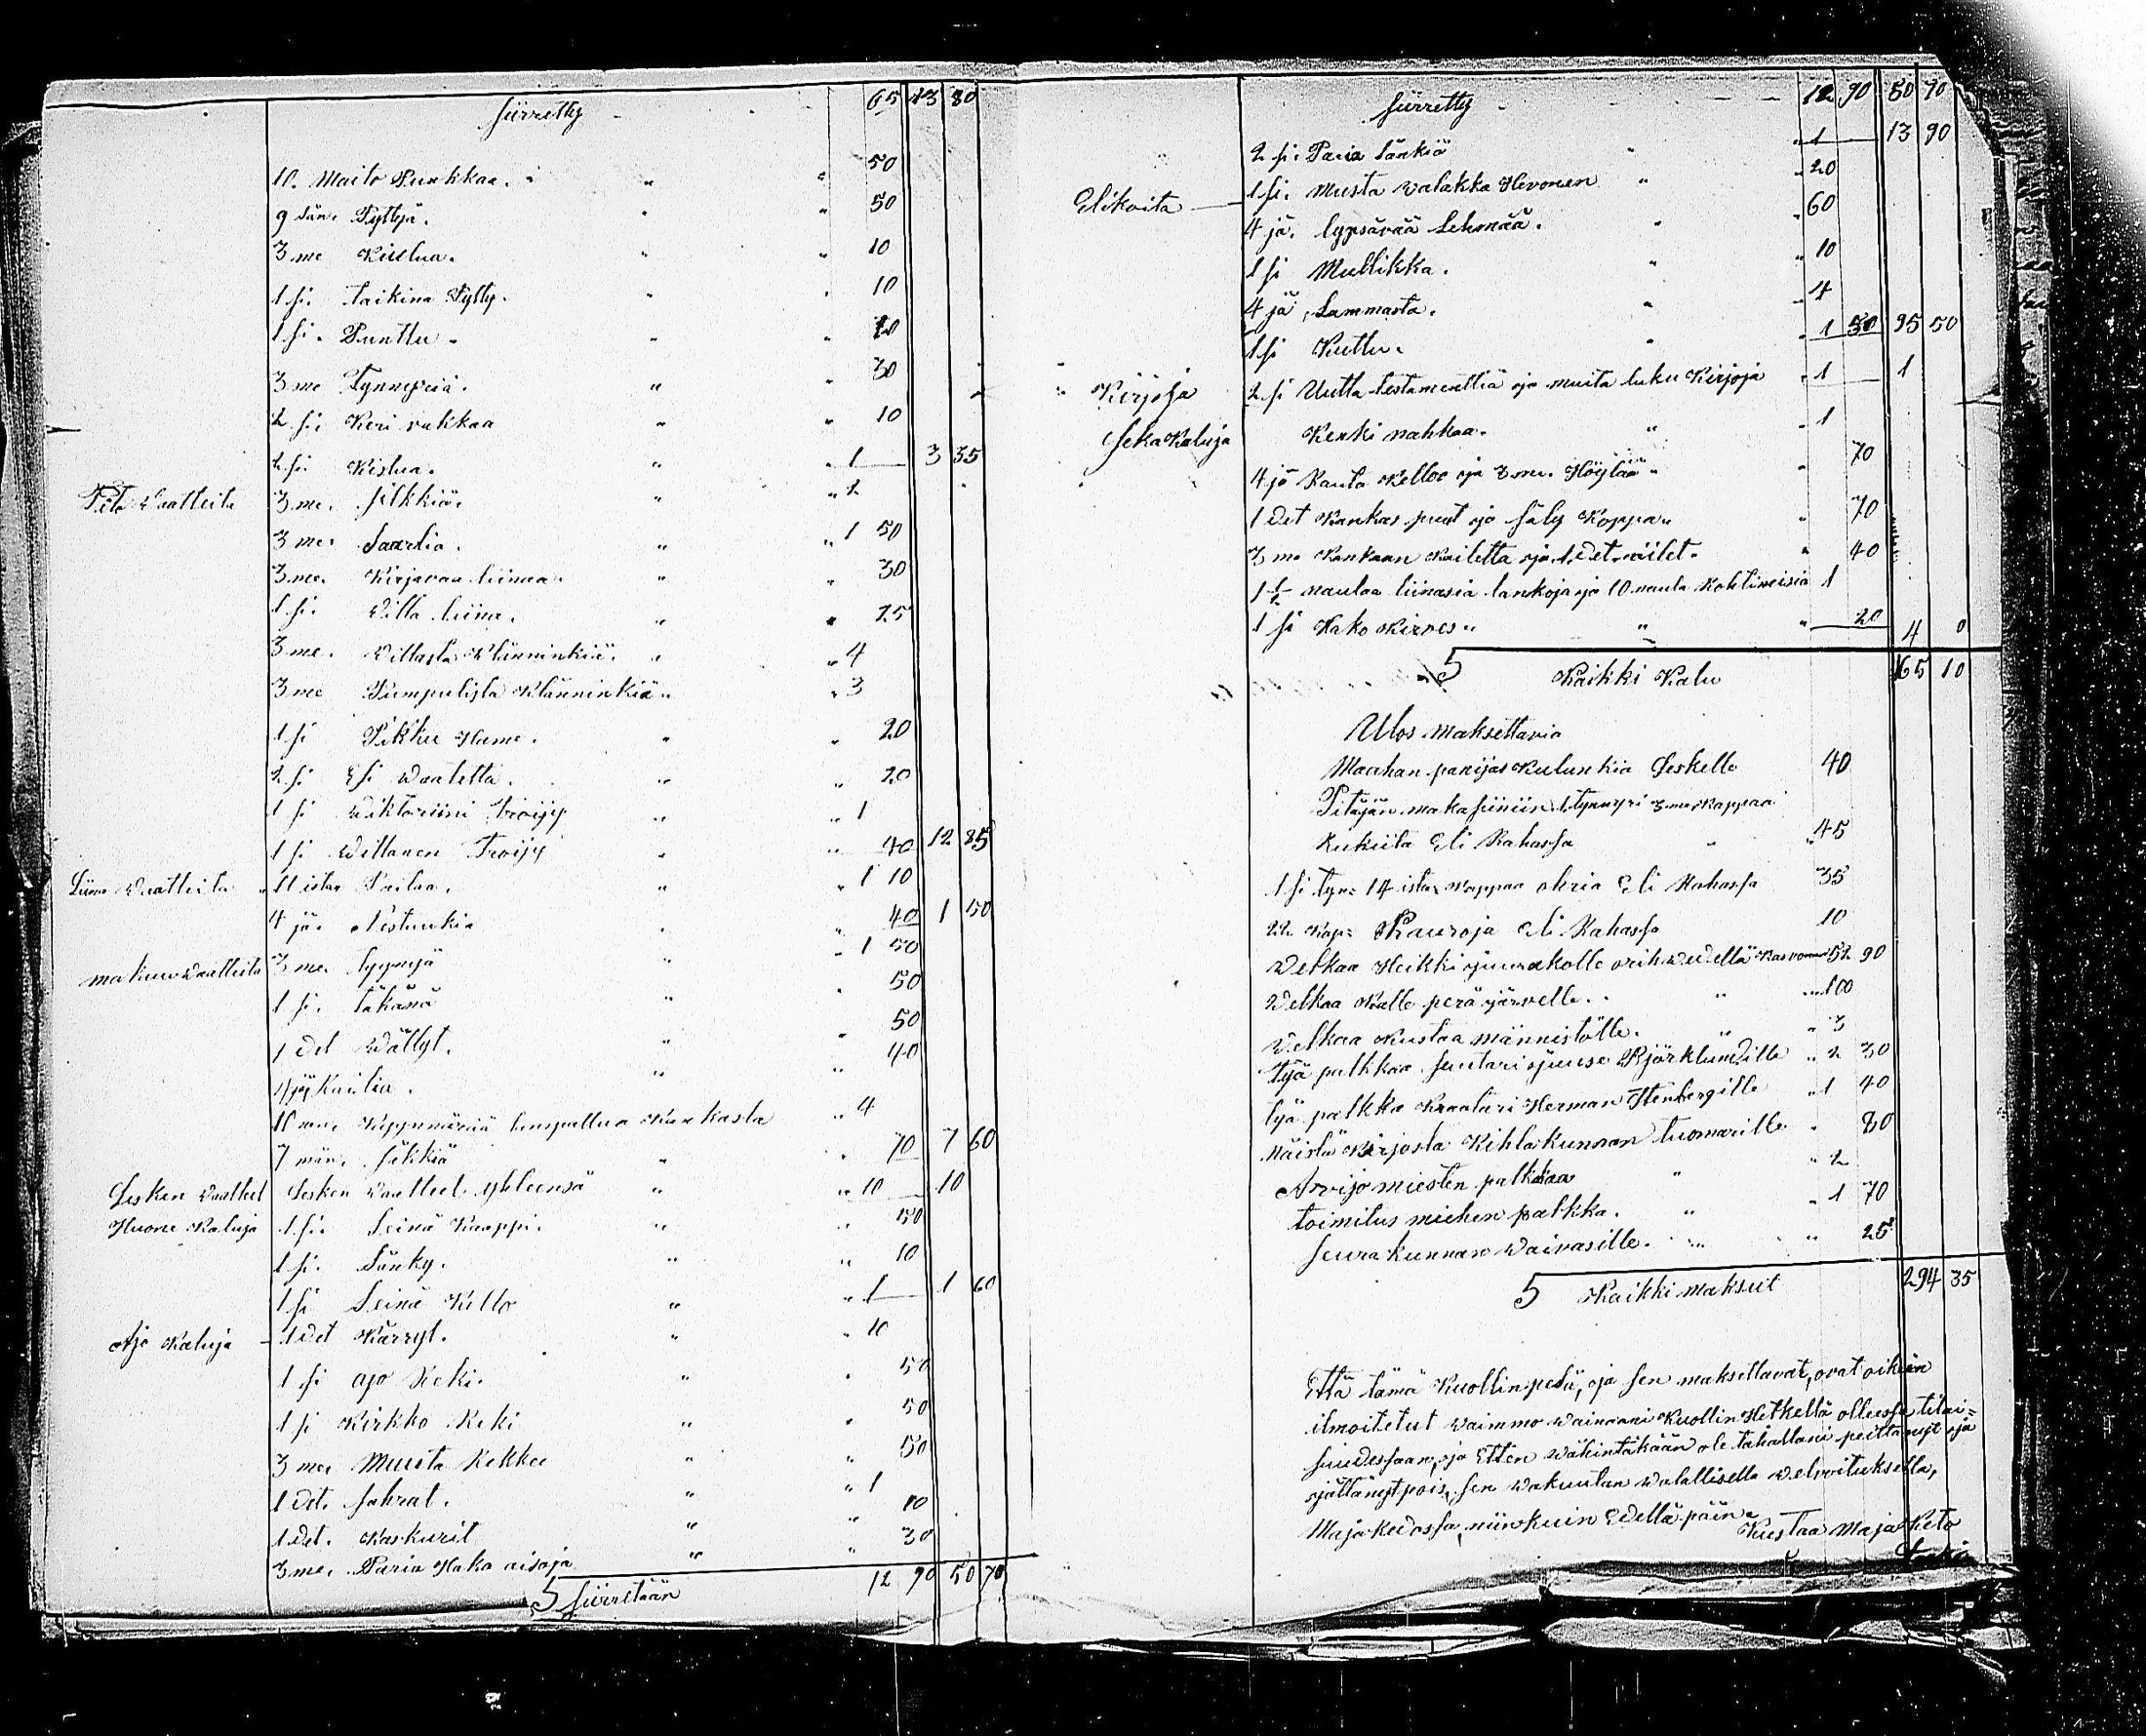 siirretty 65 13 80
10. Maito Punkkaa. " " 50
9 sän. Pyttyä. " " 50
3 me Kiulua. " " 10
1 si. taikina Pytty. " " 10
1 si. Punttu " " 20
3 me Tynnyriä. " " 30
2 si. Keri vakkaa " " 10
2 si. Kislua. " " 1 — 3 35
Pito Waatteita 3 me. silkkiä. " " 2
3 me. Saarlia. " " 1 50
3 me. Kirjavaa liinaa. " " 30
1 si. Willa liina. " " 25
3 me. Willasta Klänninkiä. " " 4
3 me Pumpulista Klänninkiä " 3
1 si Pikku Hame. " " 20
2 si Esi waatetta. " " 20
1 si Wiktoriini troijy " " 1
1 si Willanen Troijy " " 40 12 85
Liina Waatteita 11 ista Paitaa. " " 1 10
4 jä. Nestuukia " " 40 1 50
makuu waatteita 3 me. syynyä " " 1 50
1 si. täkänä " " 50
1 det Wällyt. " " 50
4 jä Raitia. " " 40
11 me. Kyynäriä Kankasta " 4
7 män. säkkiä " " 70 7 60
Lesken waatteet Lesken waatteet yhteensä " " 10 — 10
Huone Kaluja 1 si. Seinä Kaappi. " " 50
1 si. Sänky. " " 10
1 si Seinä Kello " " 1 — 1 60
Ajo Kaluja 1 det Kärryt. " " 10
1 si ajo Reki. " " 50
1 si Kirkko Reki " " 50
3 me. Muuta Rekkee " " 50
1 det. sahrat. " " 1
1 det. Kaskurit " " 10
3 me. Paria Hako aisoja " " 30
S siirretään 12 90 50 70
siirretty 12 90 50 70
2 si. Paria Länkiä " " 1 — 13 90
Elikoita — 1 si. Musta walakka Hevonen " " 20
4 jä. lypsävää Lehmää. " " 60
1 si Mullikka. " " 10
4 jä Lammasta. " " 4
1 si Kuttu. " " 1 50 95 50
Kirjoja 2 si Uutta testamenttiä ja muita luku Kirjoja " 1 — 1
Seka Kaluja Kenki nahkaa. " " 1
4 jä Rauta Kelloo ja 3 me. Höylää " 70
1 det Kankas puut ja säly Koppa " 70
3 me Kankaan Kaidetta ja 1 det niilet. " 40
1 1/2 naulaa liinasia lankoja ja 10 naula Rohtimeisia 1
1 si Hako Kirves " " " 20 4 0
S Kaikki Kalu 165 10
Ulos Maksettavia
Maahan panijas Kulunkia Leskelle 40
Pitäjän makasiiniin 1 tynnyri 3 me Kappaa
Rukiita Eli Rahassa " " 45
1 si tyn= 14 ista Kappaa ohria Eli Rahassa 35
22 Kap= Kauroja Eli Rahassa 10
Welkaa Heikki juurakolle orihwedellä Kasvonnut 52 90
Welkaa Kalle peräjärvelle. " " 100
Welkaa Kustaa männistölle. " " 3
työ palkkaa suutari juuse Björklundille " 2 30
työ palkka Kraatari Herman Stenbergille " 1 40
näistä Kirjosta Kihlakunnan tuomarille " 80
Arvijo miesten palkkaa " " 2
toimitus miehen palkka. " " 1 70
seurakunnan Waivasille. " " 25
S Kaikki maksut 294 35
Että tämä Kuollinpesä, ja sen maksettavat, ovat oikein
ilmoitetut waimmo wainaani Kuollin Hetkellä olleessa tilai=
suudessaan, ja Etten wähintäkään ole tahallani peittänyt ja
jättänyt pois, sen wakuutan walallisella welvoituksella,
Majakedossa, niinkuin Edellä päin.
Kustaa Maja Keto